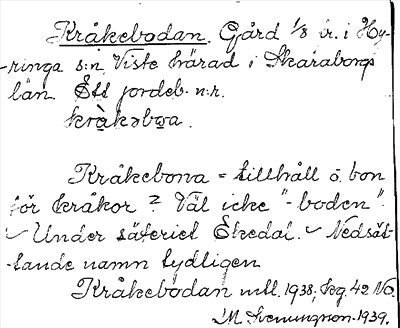 Kråkebodan. Gård 1/8 kr. i Hy-
-ringa s:n, Viste härad i Skaraborgs
län. Ett jordeb. n:r.
kràkəbωa.
Kråkebona = tillhåll o. bon
för kråkor? Väl icke "-boden".
Under säteriet Ekedal. Nedsät-
-tande namn tydligen
Kråkebodan 1938; Seg. 42 NO.
M. 1939.